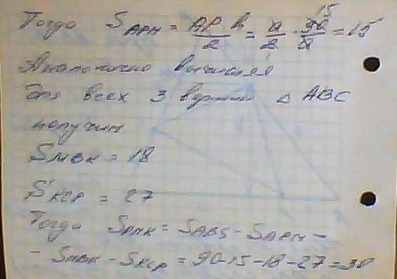 Тогда S_APM = AP/2 h = a/2 · 30/a = 15
15
Аналогично вычисляя
для всех 3 вершин △ ABC
получим
S_MBK = 18
S_KCP = 27
Тогда S_PMK = S_ABC - S_APM -
- S_MBK - S_KCP = 90-15-18-27=30